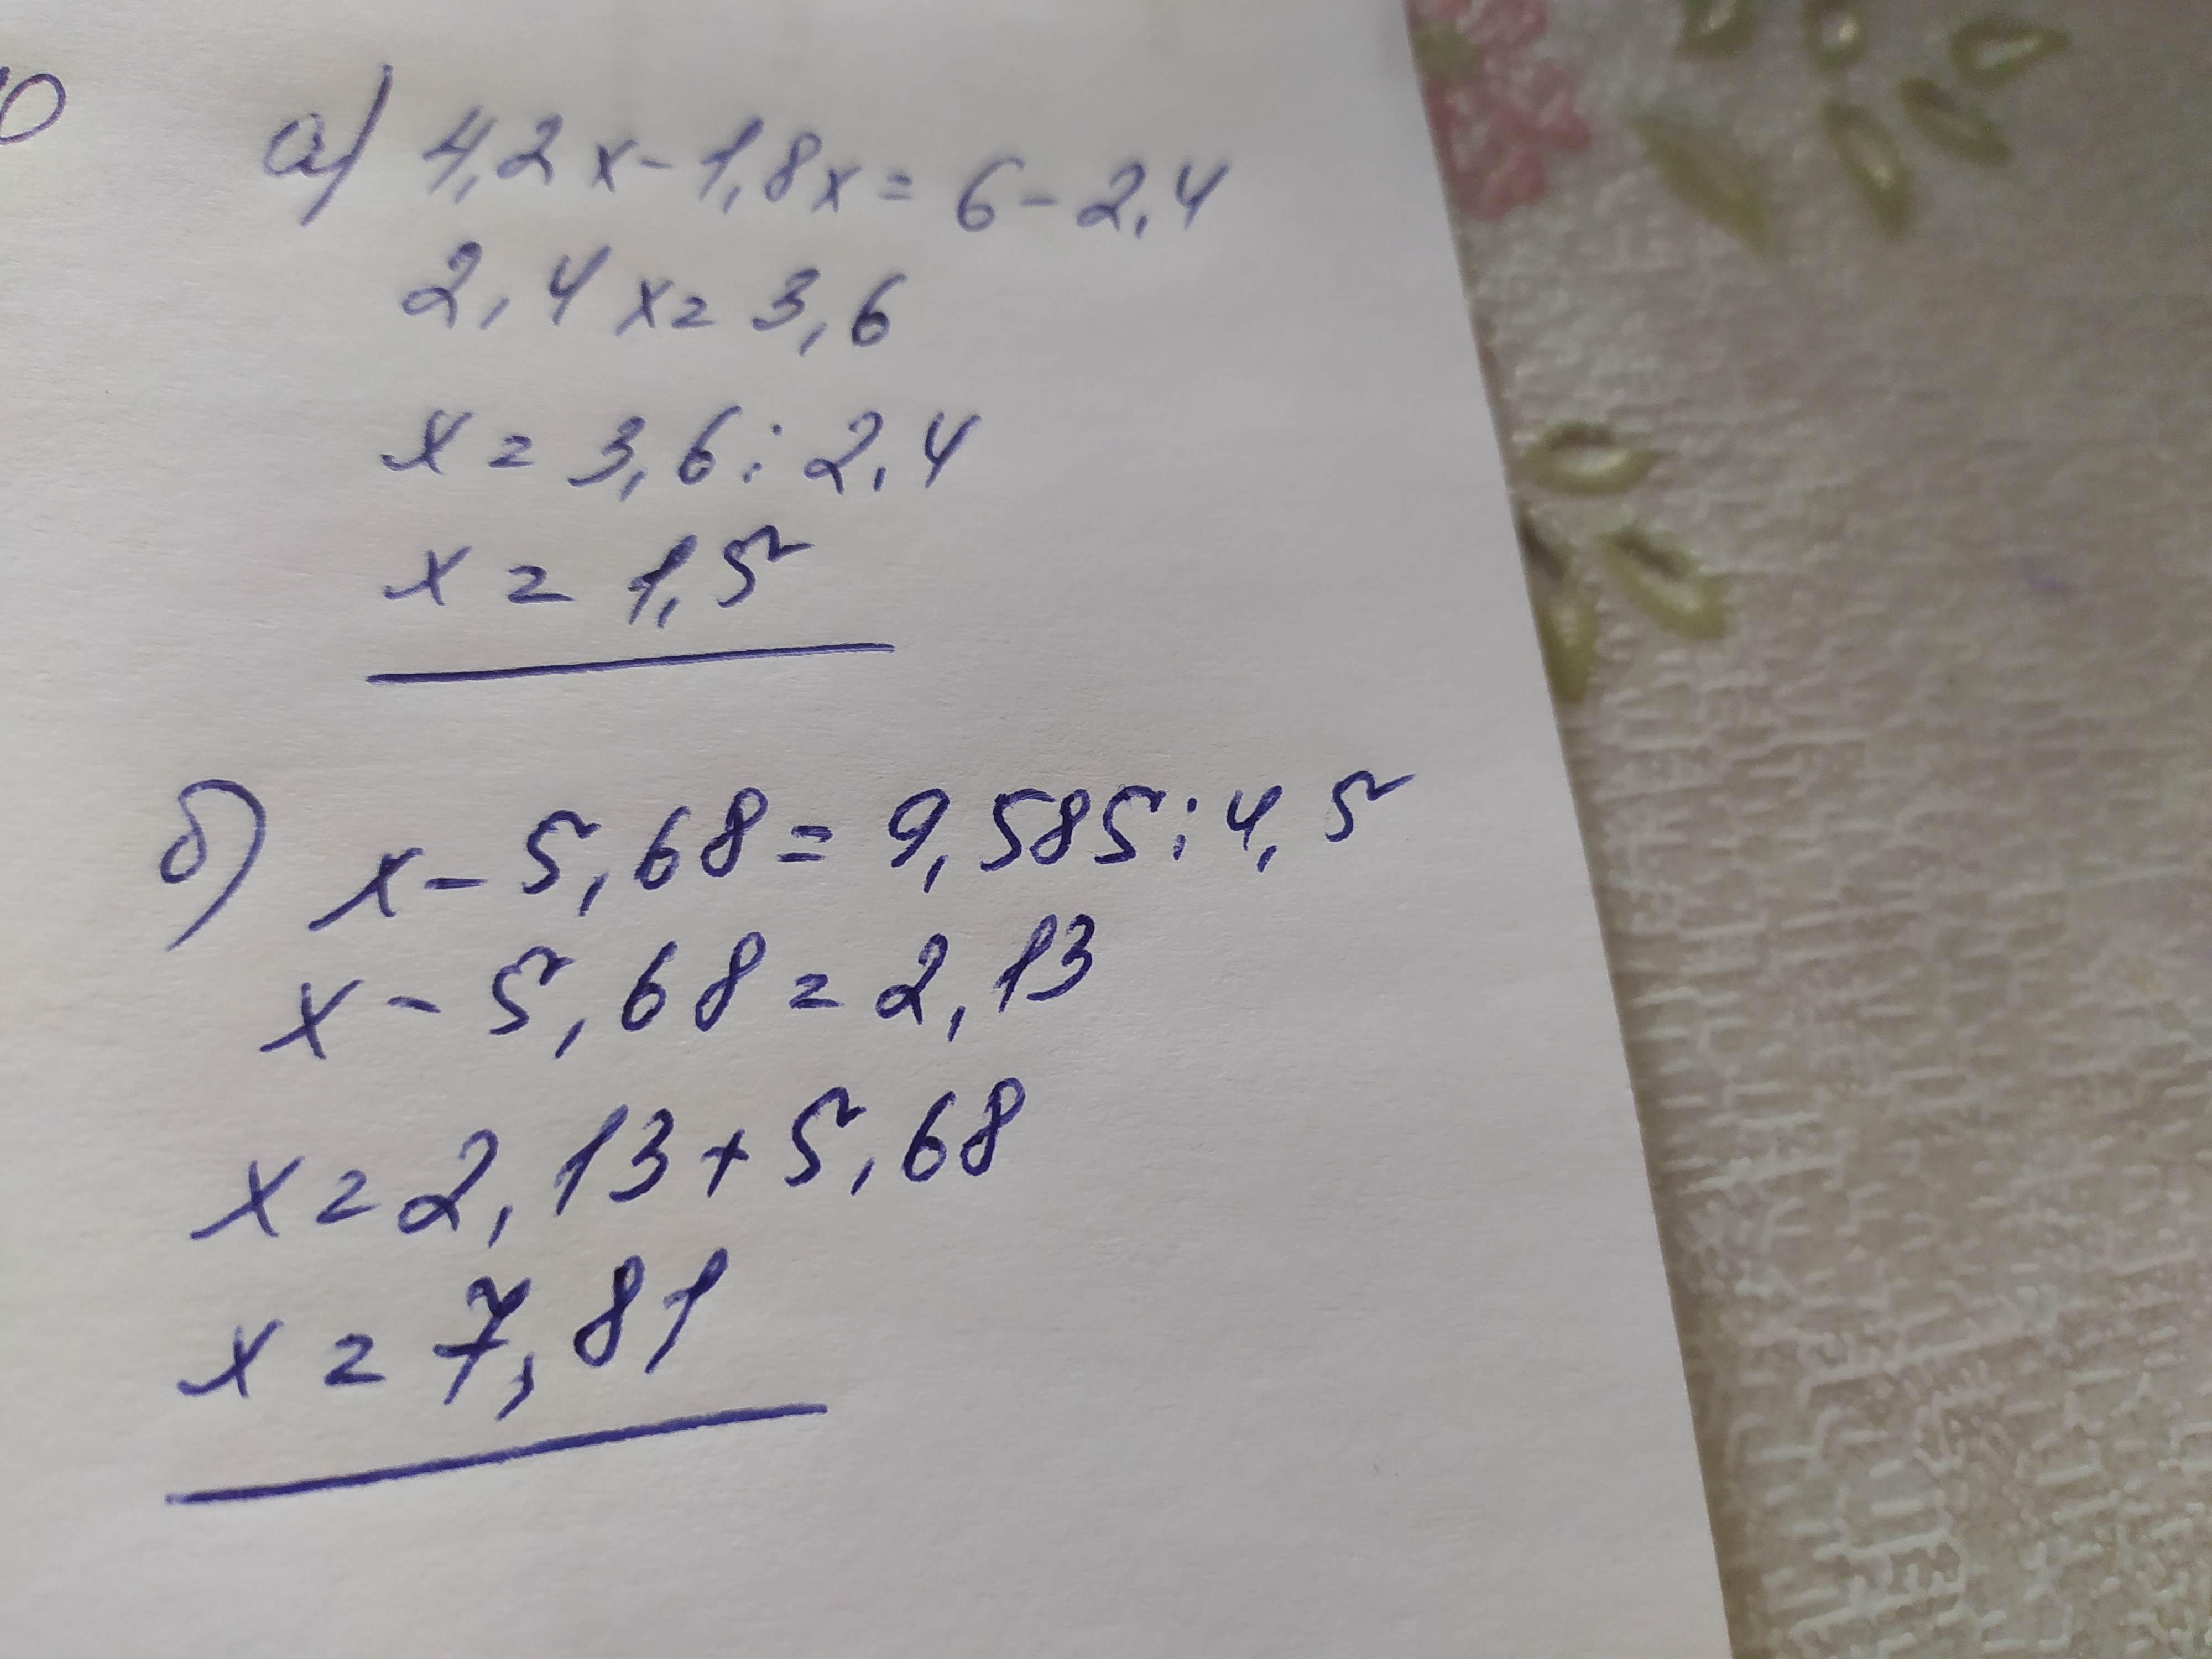 а) 4,2x - 1,8x = 6 - 2,4
2,4x = 3,6
x = 3,6 : 2,4
x = 1,5
б) x - 5,68 = 9,585 : 4,5
x - 5,68 = 2,13
x = 2,13 + 5,68
x = 7,81